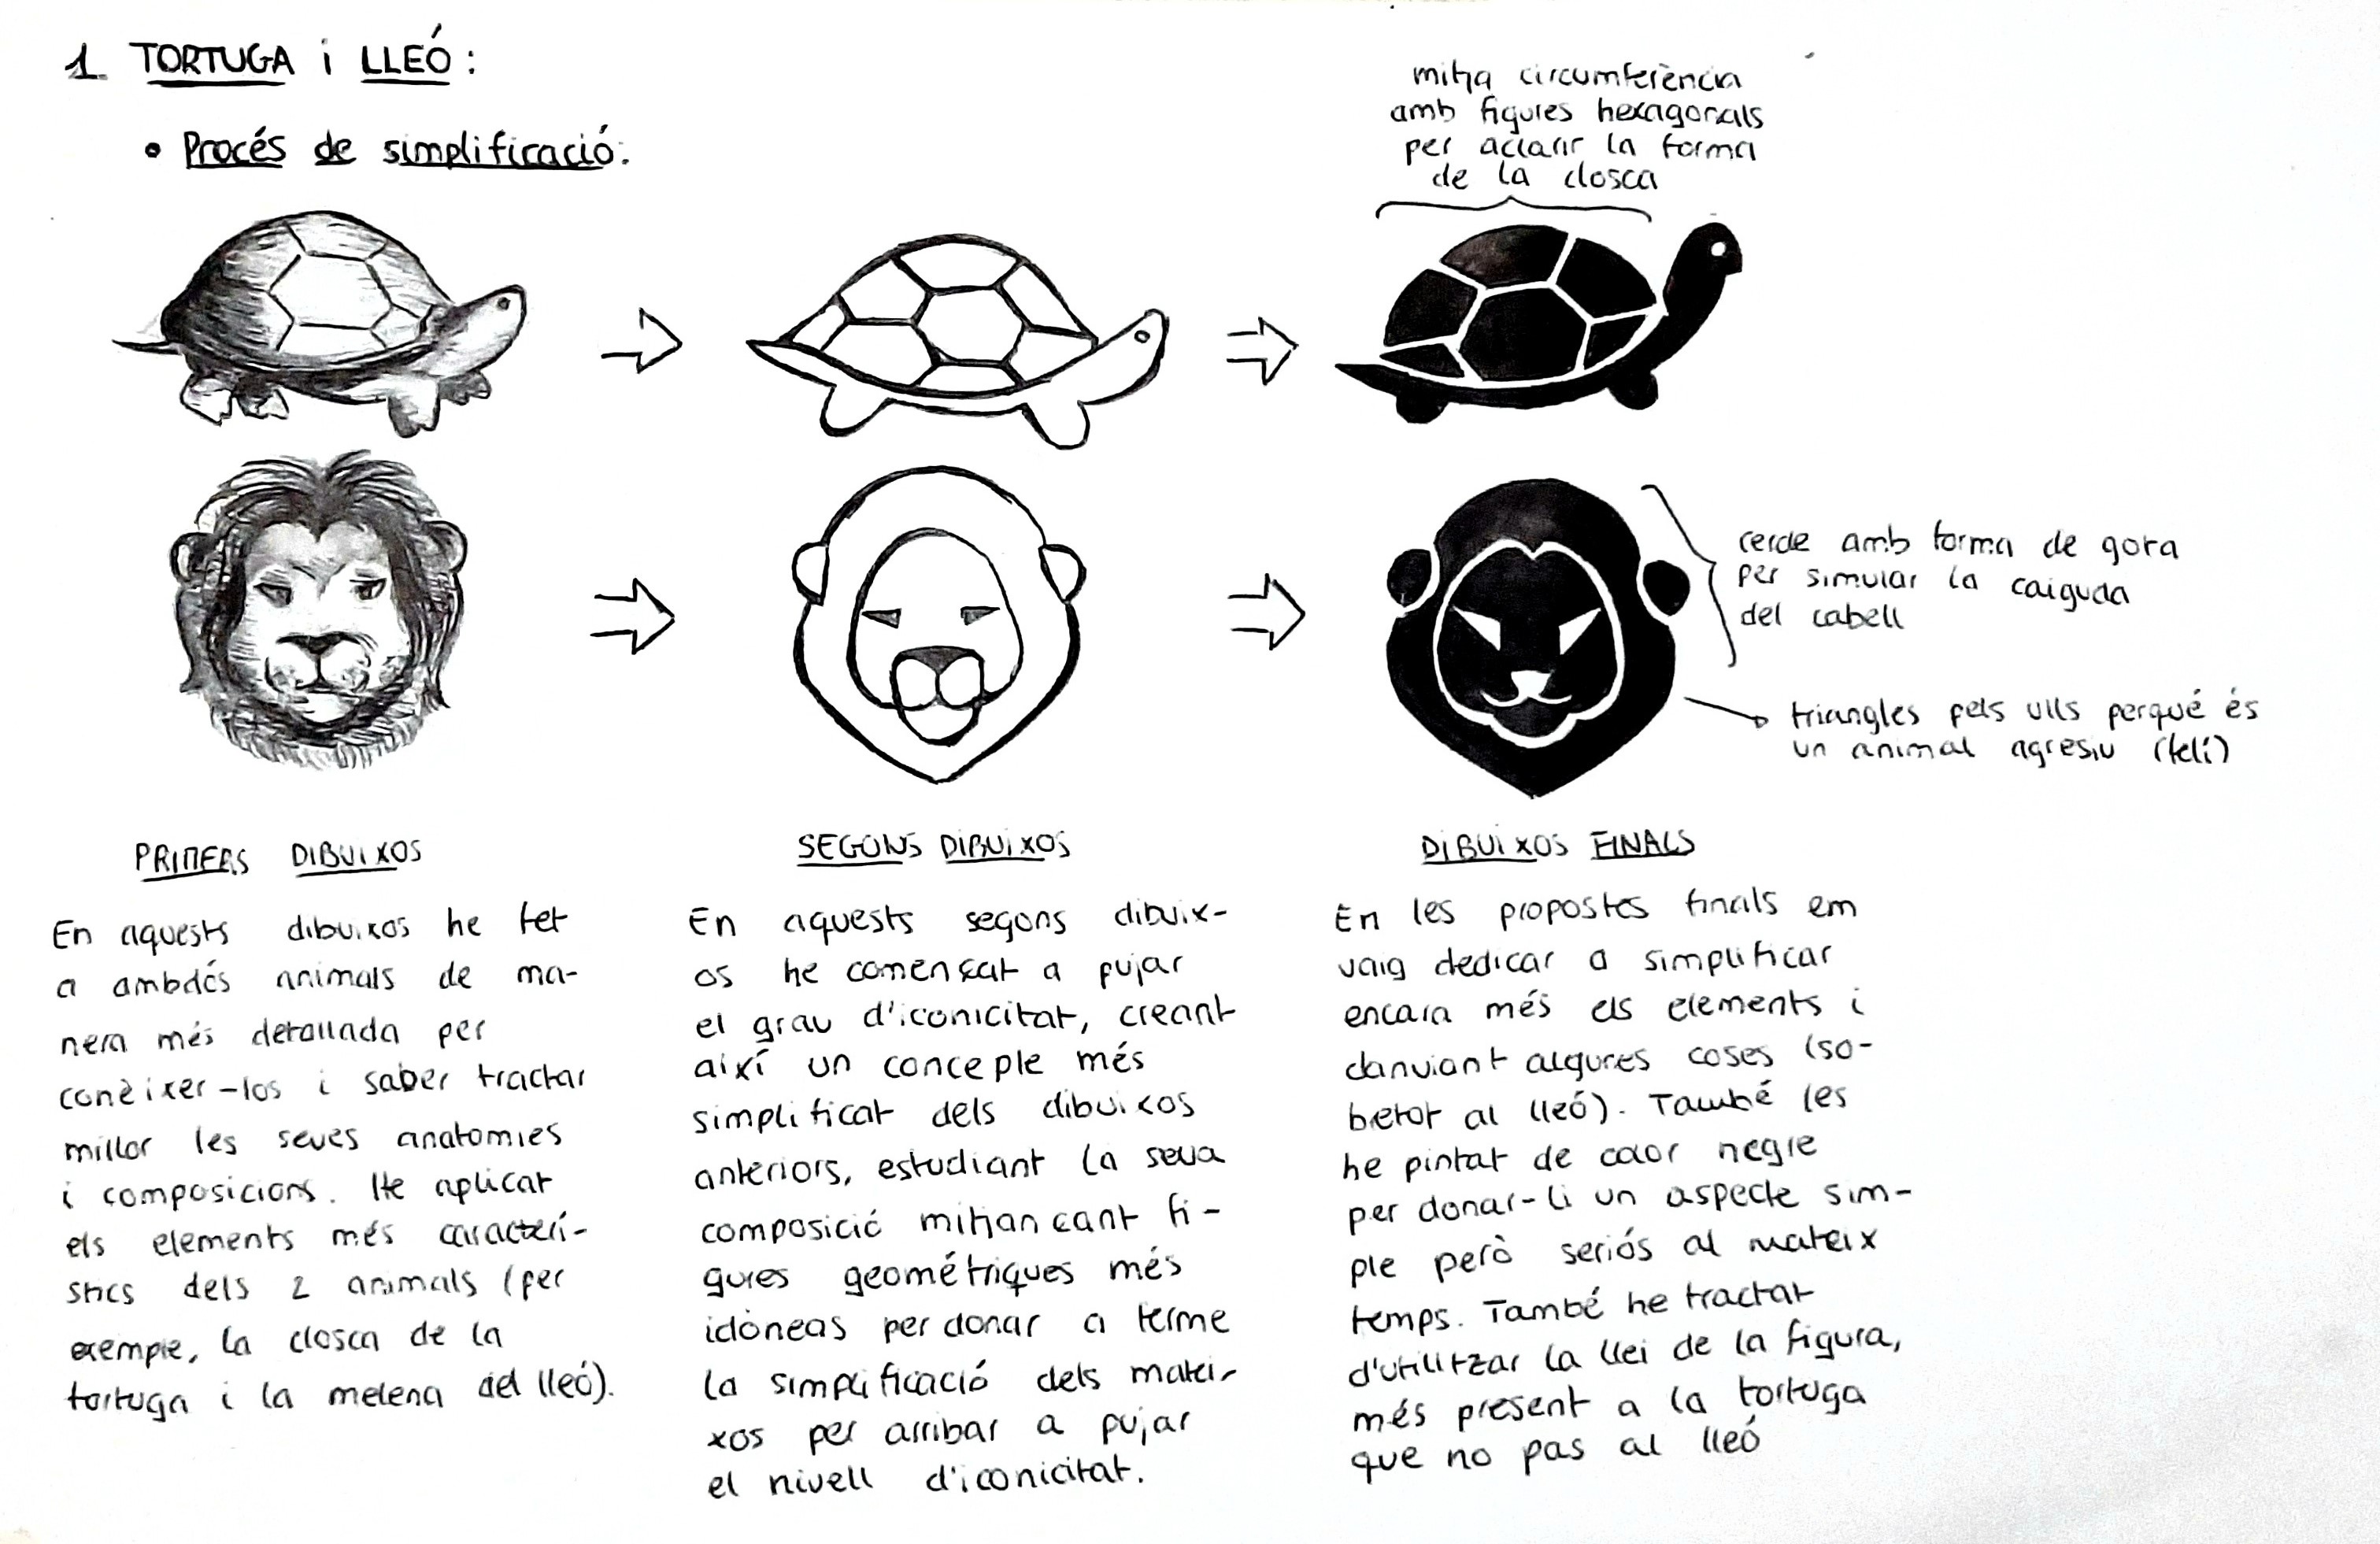 1. TORTUGA i LLEÓ:
• Procés de simplificació:
mitja circumferència
amb figures hexagonals
per aclarir la forma
de la closca
cercle amb forma de gota
per simular la caiguda
del cabell
triangles pels ulls perqué és
un animal agresiu (felí)
PRIMERS DIBUIXOS
En aquests dibuixos he fet
a ambdós animals de ma-
nera més detallada per
conèixer-los i saber tractar
millor les seves anatomies
i composicions. He aplicat
els elements més caracterí-
stics dels 2 animals (per
exemple, la closca de la
tortuga i la melena del lleó).
SEGONS DIBUIXOS
En aquests segons dibuix-
os he començat a pujar
el grau d'iconicitat, creant
així un concepte més
simplificat dels dibuixos
anteriors, estudiant la seva
composició mitjançant fi-
gures geométriques més
idòneas per donar a terme
la simplificació dels matei-
xos per arribar a pujar
el nivell d'iconicitat.
DIBUIXOS FINALS
En les propostes finals em
vaig dedicar a simplificar
encara més els elements i
canviant algunes coses (so-
bretot al lleó). També les
he pintat de color negre
per donar-li un aspecte sim-
ple però seriós al mateix
temps. També he tractat
d'utilitzar la llei de la figura,
més present a la tortuga
que no pas al lleó